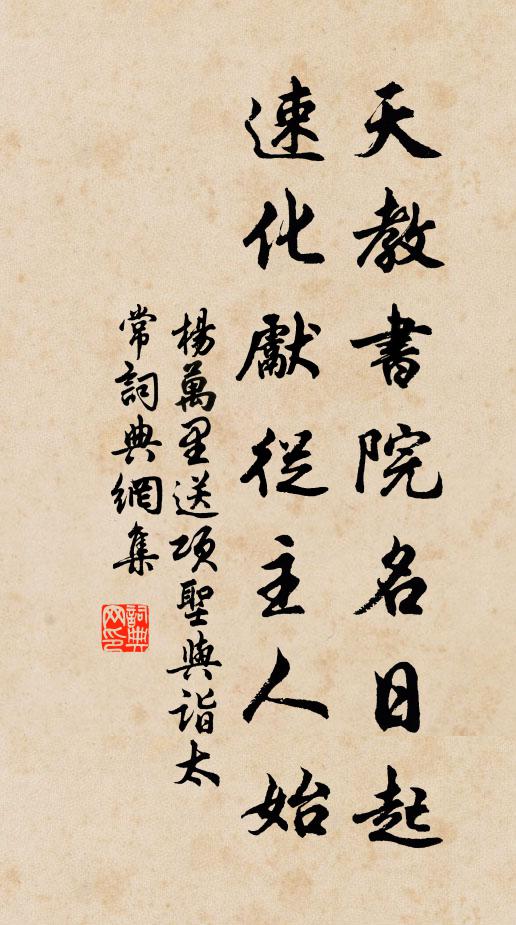 天教書院名日起
速化獻從主人始
楊萬里送項聖與詣太
常詞典網集
詞典網印